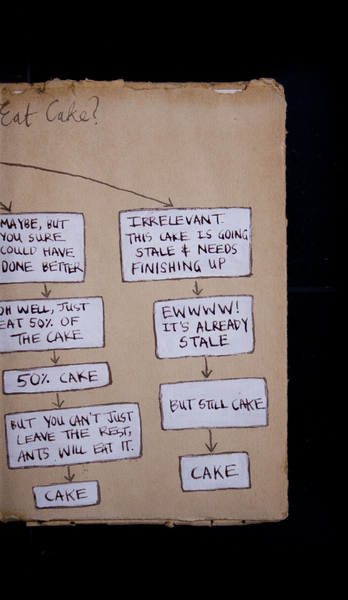 Eat Cake?
MAYBE, BUT
YOU SURE
COULD HAVE
DONE BETTER
OH WELL, JUST
EAT 50% OF
THE CAKE
50% CAKE
BUT YOU CAN'T JUST
LEAVE THE REST,
ANTS WILL EAT IT.
CAKE
IRRELEVANT.
THIS CAKE IS GOING
STALE & NEEDS
FINISHING UP
EWWWW!
IT'S ALREADY
STALE
BUT STILL CAKE
CAKE